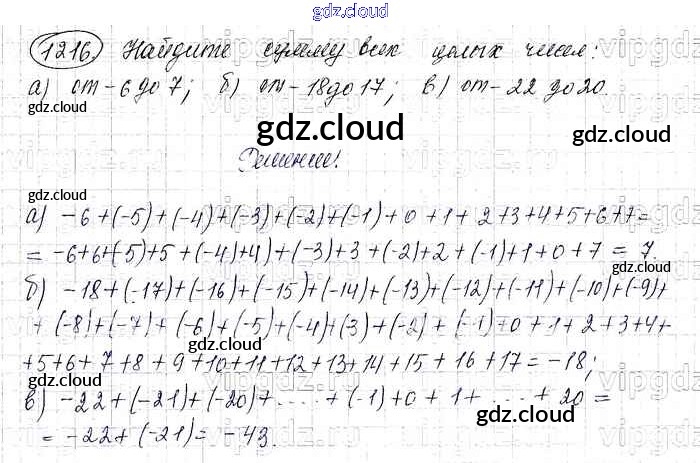 gdz.cloud
1216. Найдите сумму всех целых чисел:
а) от -6 до 7; б) от -18 до 17; в) от -22 до 20.
gdz.cloud
gdz.cloud
gdz.cloud
Решение:
gdz.cloud
а) -6 + (-5) + (-4) + (-3) + (-2) + (-1) + 0 + 1 + 2 + 3 + 4 + 5 + 6 + 7 =
= -6+6+(-5)+5 + (-4)+4) + (-3)+3 + (-2)+2 + (-1)+1+0+7 = 7.
gdz.cloud
б) -18 + (-17) + (-16) + (-15) + (-14) + (-13) + (-12) + (-11) + (-10) + (-9) +
+ (-8) + (-7) + (-6) + (-5) + (-4) + (3) + (-2) + (-1) + 0 + 1 + 2 + 3 + 4 +
+5 + 6 + 7 + 8 + 9 + 10 + 11 + 12 + 13 + 14 + 15 + 16 + 17 = -18;
gdz.cloud
gdz.cloud
в) -22 + (-21) + (-20) + ... + (-1) + 0 + 1 + ... + 20 =
gdz.cloud
= -22 + (-21) = -43.